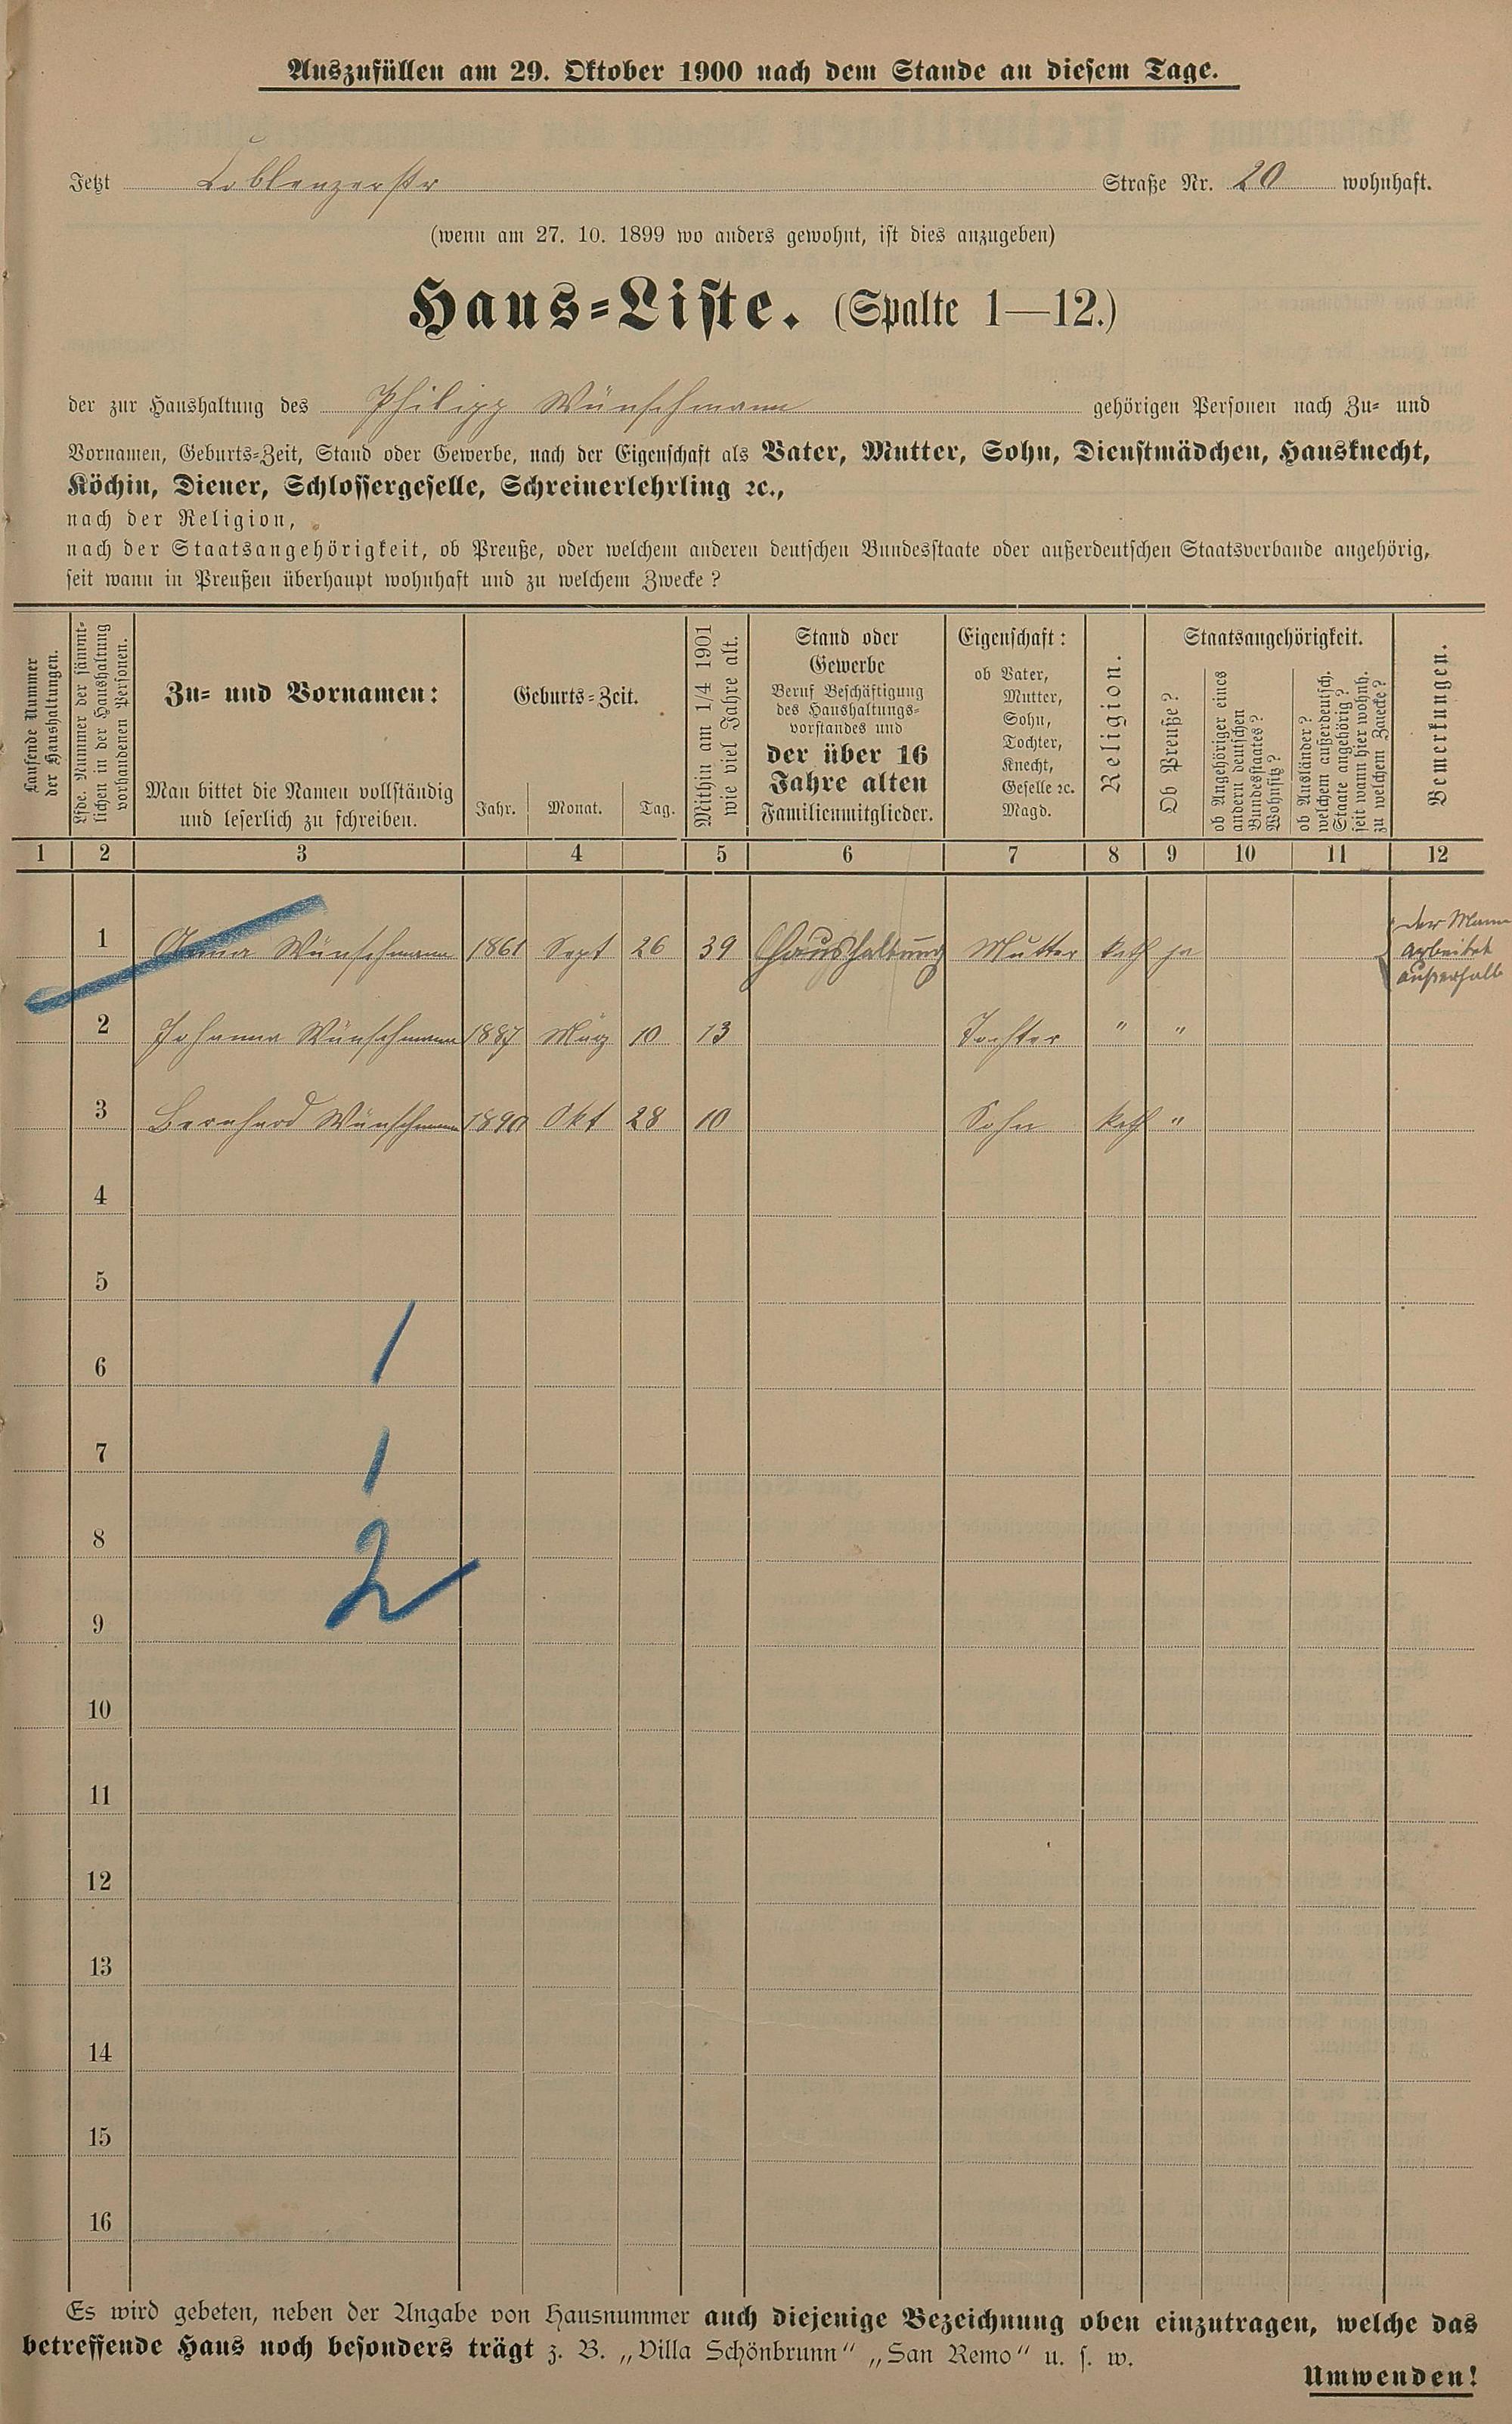 Auszufüllen am 29. Oktober 1900 nach dem Stande an diesem Tage.
Jetzt Coblenzerstr Straße Nr. 20 wohnhaft.
(wenn am 27. 10. 1899 wo anders gewohnt, ist dies anzugeben)
Haus-Liste. (Spalte 1—12.)
der zur Haushaltung des Philipp Wünschmann gehörigen Personen nach Zu- und
Vornamen, Geburts-Zeit, Stand oder Gewerbe, nach der Eigenschaft als Vater, Mutter, Sohn, Dienstmädchen, Hausknecht,
Köchin, Diener, Schlossergeselle, Schreinerlehrling ꝛc.,
nach der Religion,
nach der Staatsangehörigkeit, ob Preuße, oder welchem anderen deutschen Bundesstaate oder außerdeutschen Staatsverbande angehörig,
seit wann in Preußen überhaupt wohnhaft und zu welchem Zwecke?
Laufende Nummer
der Haushaltungen.
Lfde. Nummer der sämmt-
lichen in der Haushaltung
vorhandenen Personen.
Zu- und Vornamen:
Man bittet die Namen vollständig
und leserlich zu schreiben.
Geburts-Zeit.
Jahr. Monat. Tag.
Mithin am 1/4 1901
wie viel Jahre alt.
Stand oder
Gewerbe
Beruf Beschäftigung
des Haushaltungs-
vorstandes und
der über 16
Jahre alten
Familienmitglieder.
Eigenschaft:
ob Vater,
Mutter,
Sohn,
Tochter,
Knecht,
Geselle ꝛc.
Magd.
Religion.
Staatsangehörigkeit.
Ob Preuße?
ob Angehöriger eines
andern deutschen
Bundesstaates?
Wohnsitz?
ob Ausländer?
welchem außerdeutsch.
Staate angehörig?
seit wann hier wohnh.
zu welchem Zwecke?
Bemerkungen.
1 2 3 4 5 6 7 8 9 10 11 12
1 Anna Wünschmann 1861 Sept 26 39 Haushaltung Mutter kath ja der Mann
arbeitet
außerhalb
2 Johanna Wünschmann 1887 März 10 13 Tochter " "
3 Bernhard Wünschmann 1890 Okt 28 10 Sohn kath "
4
5
6
1
7
1
8
2
9
10
11
12
13
14
15
16
Es wird gebeten, neben der Angabe von Hausnummer auch diejenige Bezeichnung oben einzutragen, welche das
betreffende Haus noch besonders trägt z. B. „Villa Schönbrunn“ „San Remo“ u. s. w.
Umwenden!